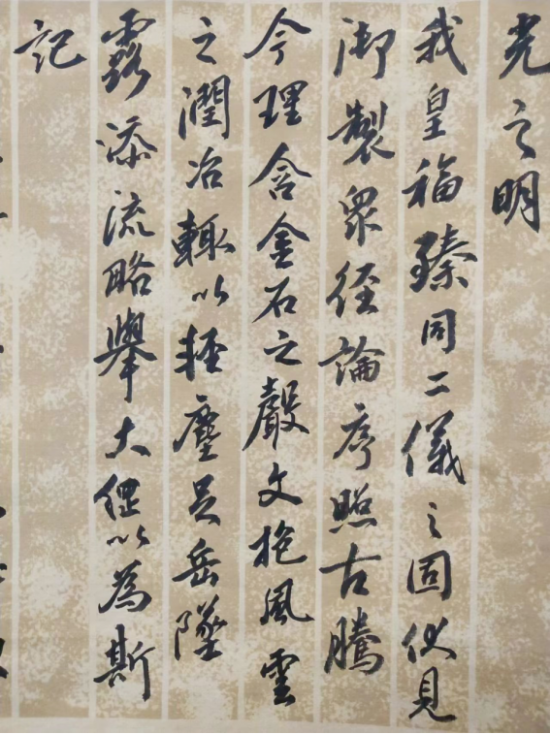 光之明
我皇福臻同二儀之固伏見
御製眾經論序照古騰
今理含金石之聲文抱風雲
之潤冶輒以輕塵足岳墜
露添流略舉大綱以為斯
記